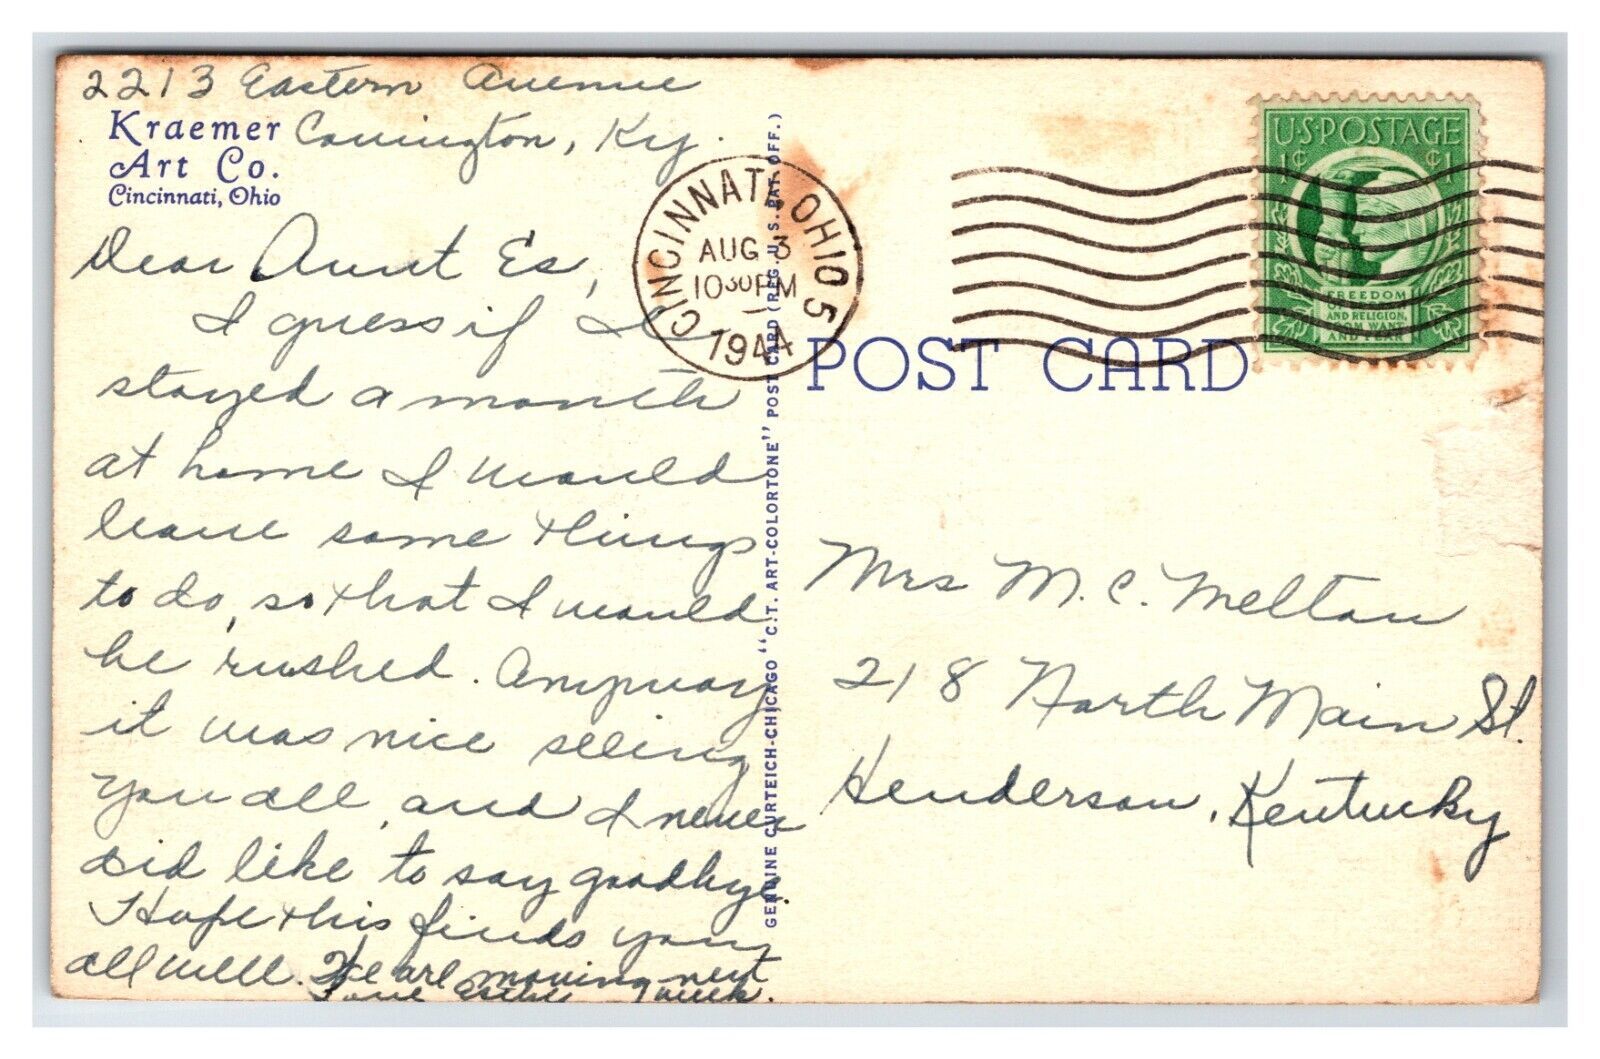 2213 Eastern Avenue
Covington, Ky.
Kraemer
Art Co.
Cincinnati, Ohio
Dear Aunt Es,
I guess if I
stayed a month
at home I would
leave some things
to do, so that I would
be rushed. Anyway
it was nice seeing
you all, and I never
did like to say goodbye.
Hope this finds you
all well. We are moving next
Love week.
GENUINE CURTEICH-CHICAGO "C.T. ART-COLORTONE" POST CARD (REG. U.S. PAT. OFF.)
CINCINNATI, OHIO 5
AUG 3
10 30 PM
1944
U.S. POSTAGE
1¢ ¢1
FREEDOM
OF SPEECH
AND RELIGION,
FROM WANT
AND FEAR
POST CARD
Mrs M. C. Melton
218 North Main St.
Henderson, Kentucky